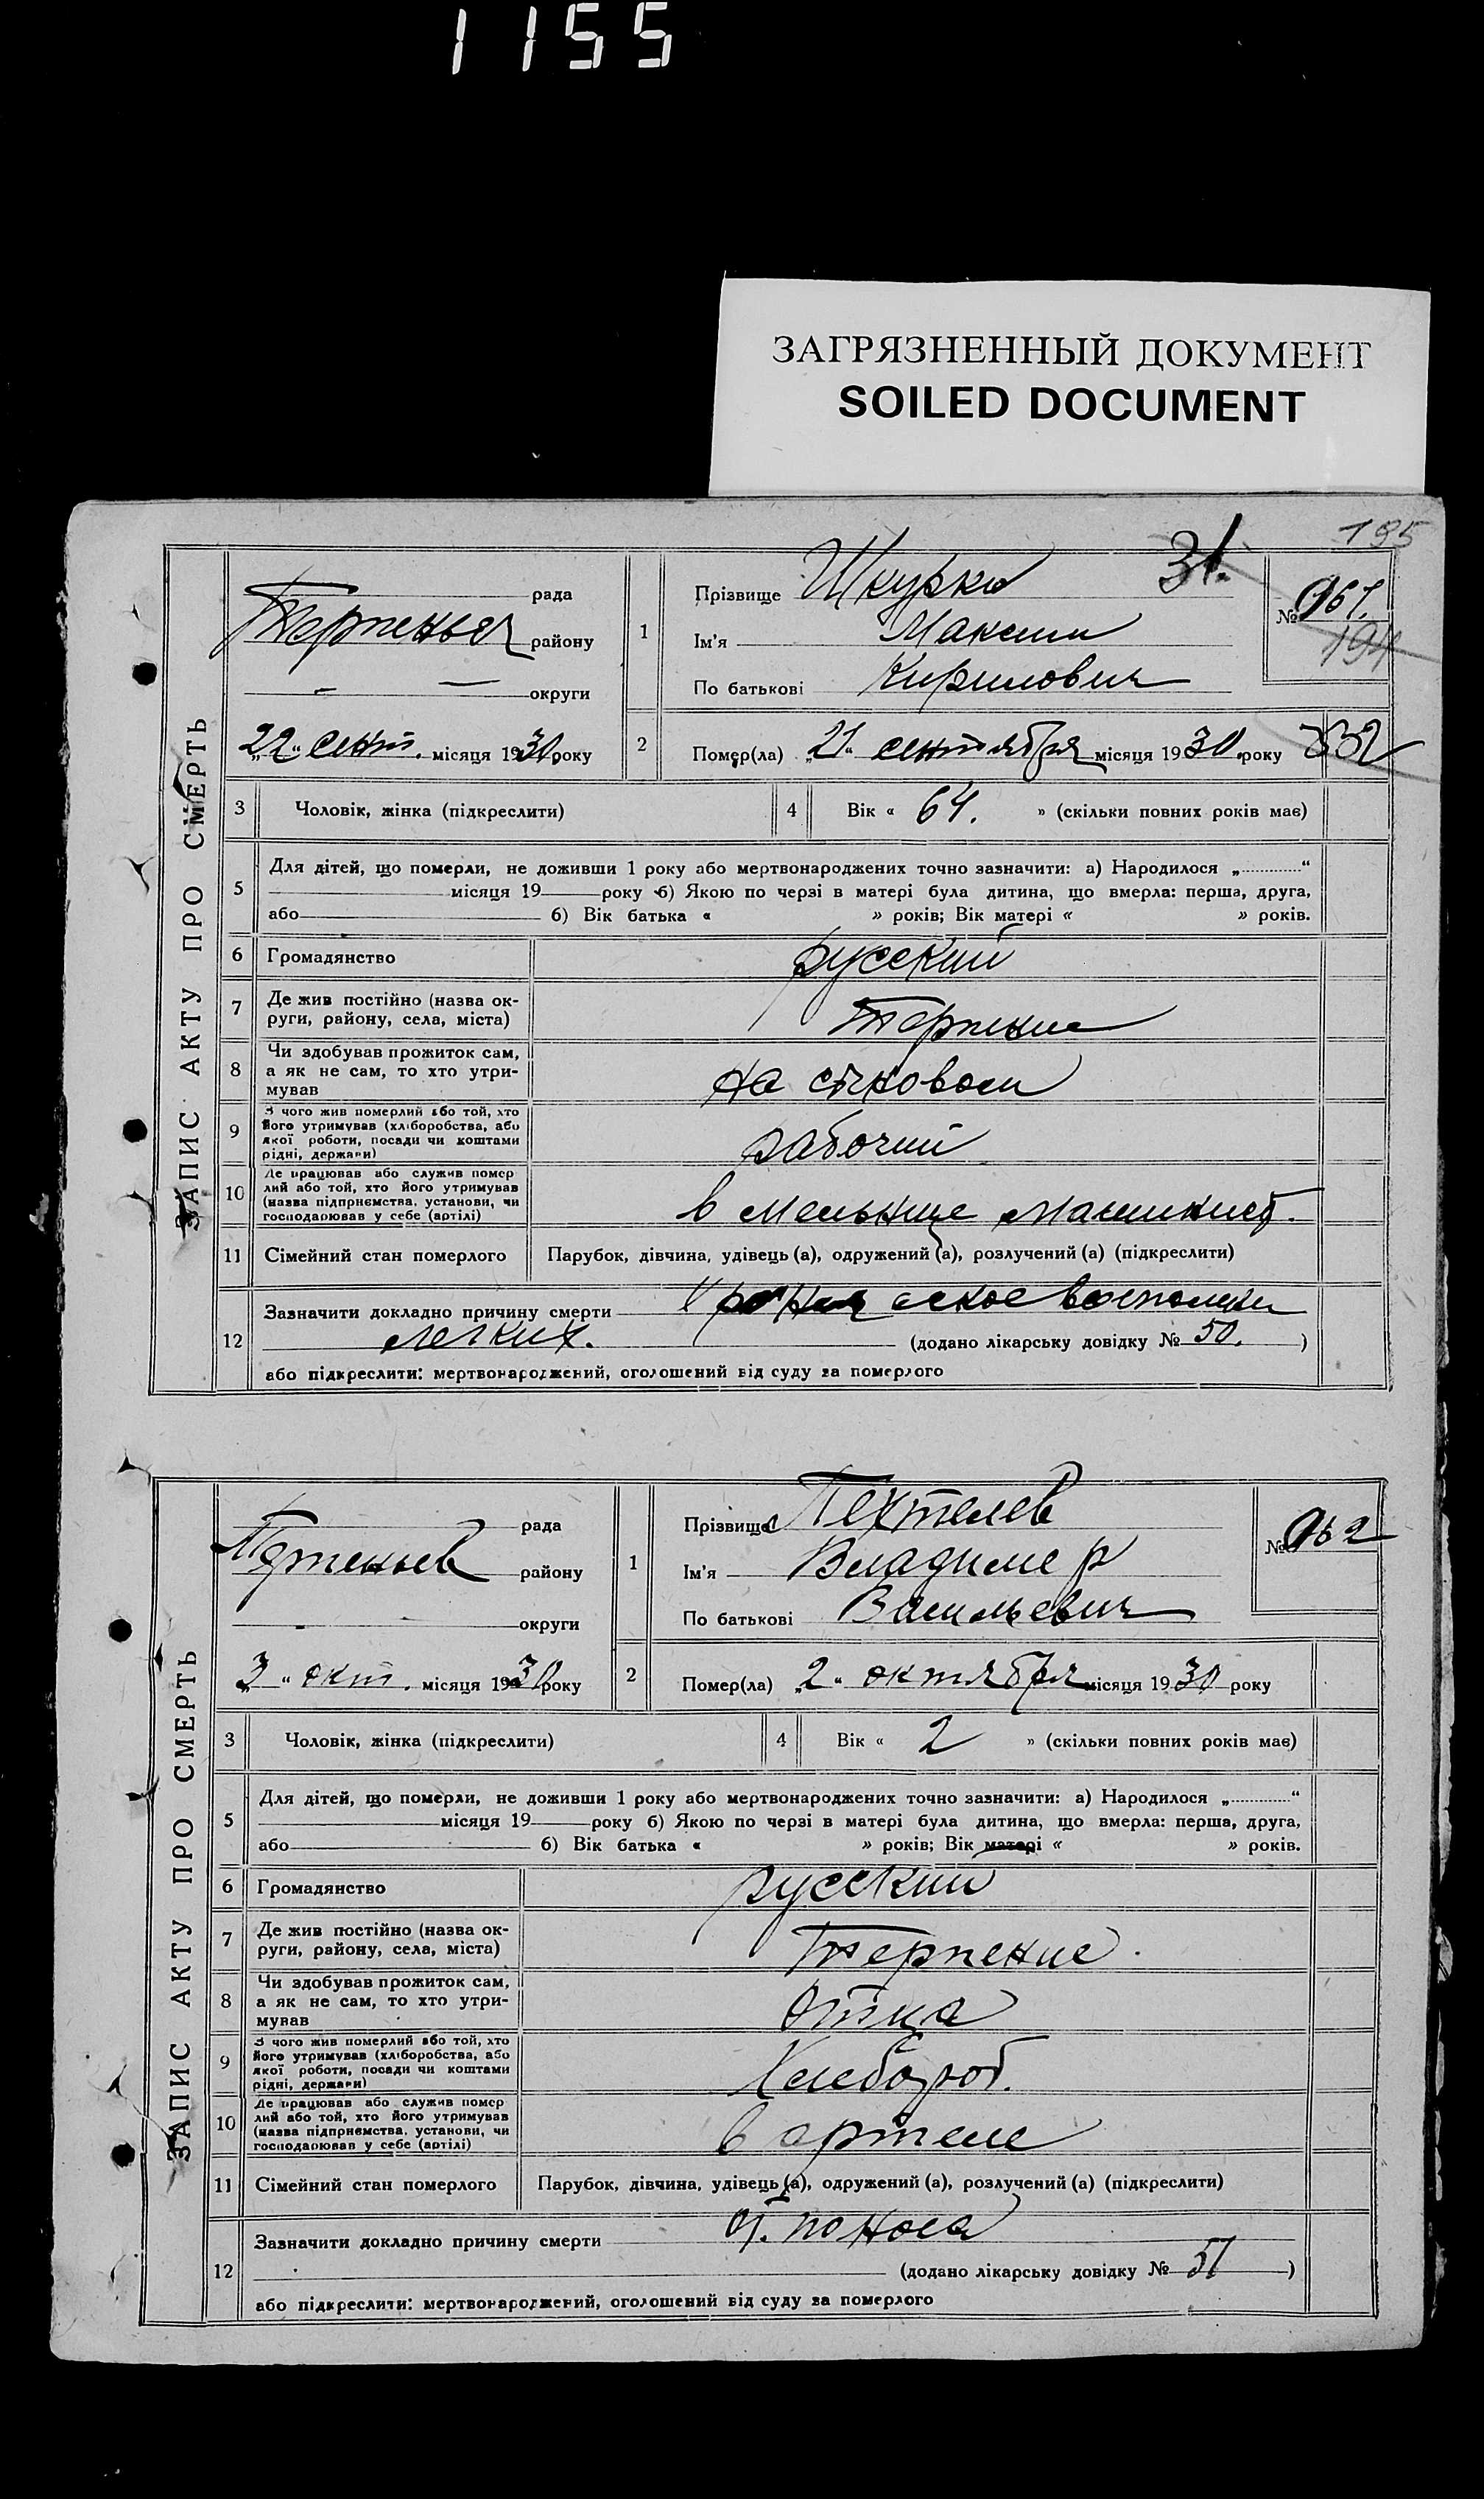 1155
ЗАГРЯЗНЕННЫЙ ДОКУМЕНТ
SOILED DOCUMENT
195
ЗАПИС АКТУ ПРО СМЕРТЬ
рада
району
округи
„22“ сент. місяця 1930 року
1
Прізвище Шкурко 31.
Ім'я Максим
По батькові Кирилович
№ 961.
194
2
Помер(ла) „21“ сентября місяця 1930 року 832
3 Чоловік, жінка (підкреслити)
4 Вік « 64. » (скільки повних років має)
5 Для дітей, що померли, не доживши 1 року або мертвонароджених точно зазначити: а) Народилося „ “
місяця 19 року б) Якою по черзі в матері була дитина, що вмерла: перша, друга,
або б) Вік батька « » років; Вік матері « » років.
6 Громадянство русский
7 Де жив постійно (назва ок-
руги, району, села, міста) Терпение
8 Чи здобував прожиток сам,
а як не сам, то хто утри-
мував
на
9 З чого жив померлий або той, хто
його утримував (хліборобства, або
якої роботи, посади чи коштами
рідні, держави) рабочий
10 Де працював або служив помер
лий або той, хто його утримував
(назва підприємства, установи, чи
господарював у себе (артілі) в мельнице машинист.
11 Сімейний стан померлого Парубок, дівчина, удівець (а), одружений (а), розлучений (а) (підкреслити)
12 Зазначити докладно причину смерти
легких. (додано лікарську довідку № 50. )
або підкреслити: мертвонароджений, оголошений від суду за померлого
ЗАПИС АКТУ ПРО СМЕРТЬ
рада
району
округи
„3“ окт. місяця 1930 року
1
Прізвище Пехтелев
Ім'я Владимер
По батькові Васильевич
№ 962
2
Помер(ла) „2“ октября місяця 1930 року
3 Чоловік, жінка (підкреслити)
4 Вік « 2 » (скільки повних років має)
5 Для дітей, що померли, не доживши 1 року або мертвонароджених точно зазначити: а) Народилося „ “
місяця 19 року б) Якою по черзі в матері була дитина, що вмерла: перша, друга,
або б) Вік батька « » років; Вік матері « » років.
6 Громадянство русский
7 Де жив постійно (назва ок-
руги, району, села, міста) Терпение.
8 Чи здобував прожиток сам,
а як не сам, то хто утри-
мував
отца
9 З чого жив померлий або той, хто
його утримував (хліборобства, або
якої роботи, посади чи коштами
рідні, держави) Хлебороб.
10 Де працював або служив помер
лий або той, хто його утримував
(назва підприємства, установи, чи
господарював у себе (артілі) в артеле
11 Сімейний стан померлого Парубок, дівчина, удівець (а), одружений (а), розлучений (а) (підкреслити)
12 Зазначити докладно причину смерти от. поноса
(додано лікарську довідку № 51 )
або підкреслити: мертвонароджений, оголошений від суду за померлого